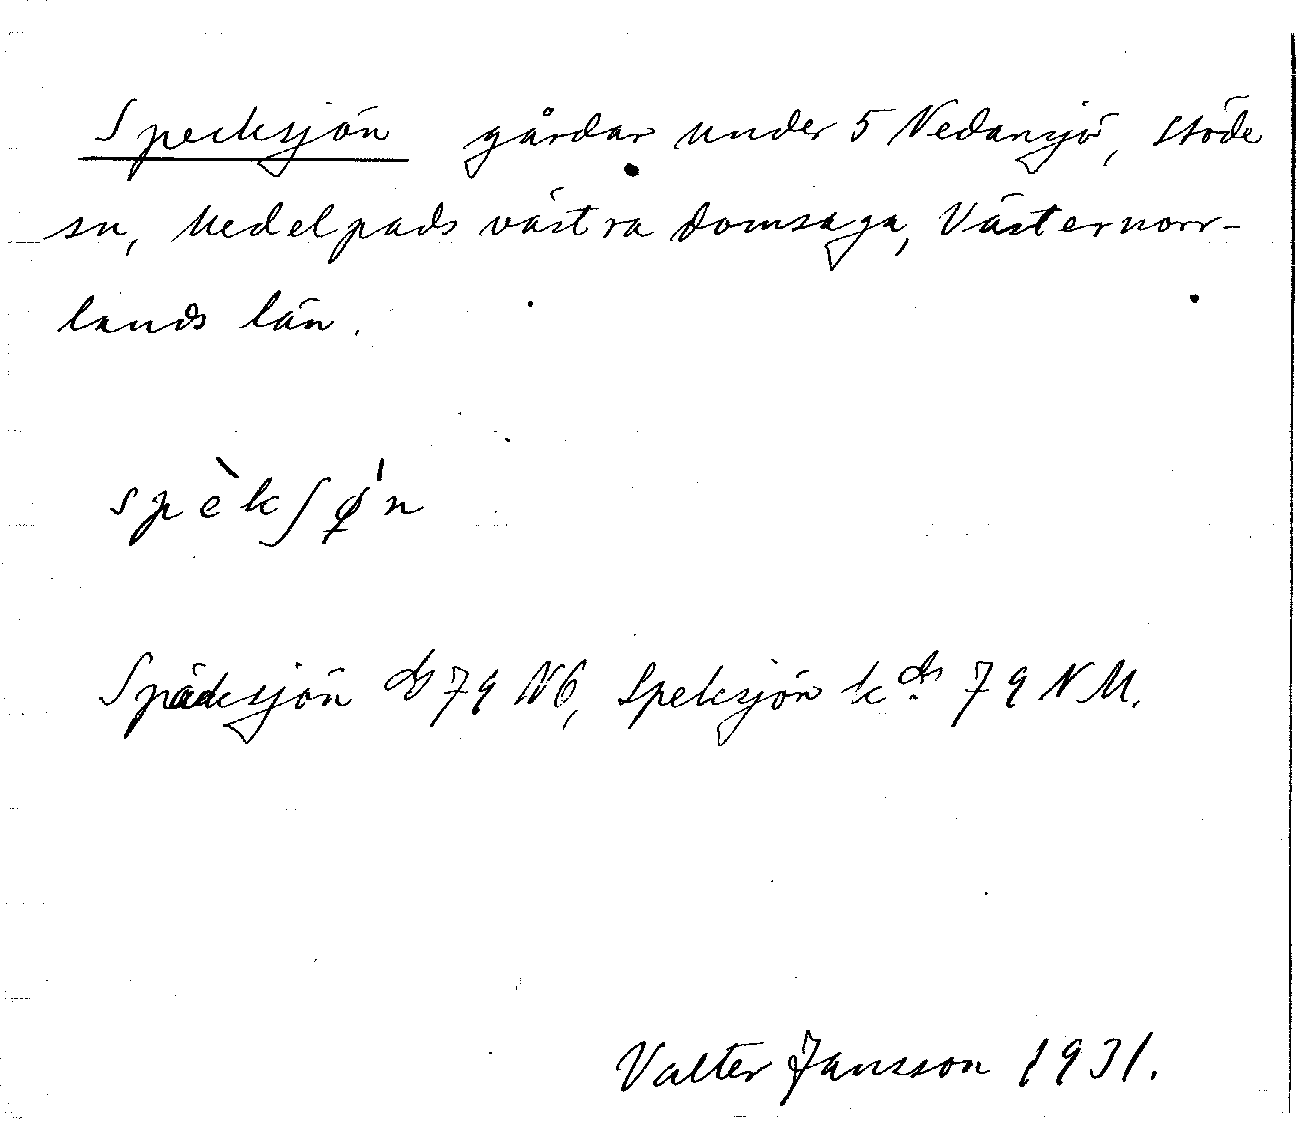 Specksjön gårdar under 5 Nedansjö, Stöde
sn, Medelpads västra domsaga, Västernorr-
lands län.
spèkʃø̀n
Späcksjön ds 79 NG, Speksjön k ds 79 NM.
Valter Jansson 1931.